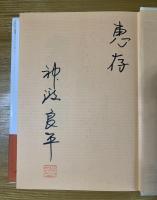 惠存
神渡良平